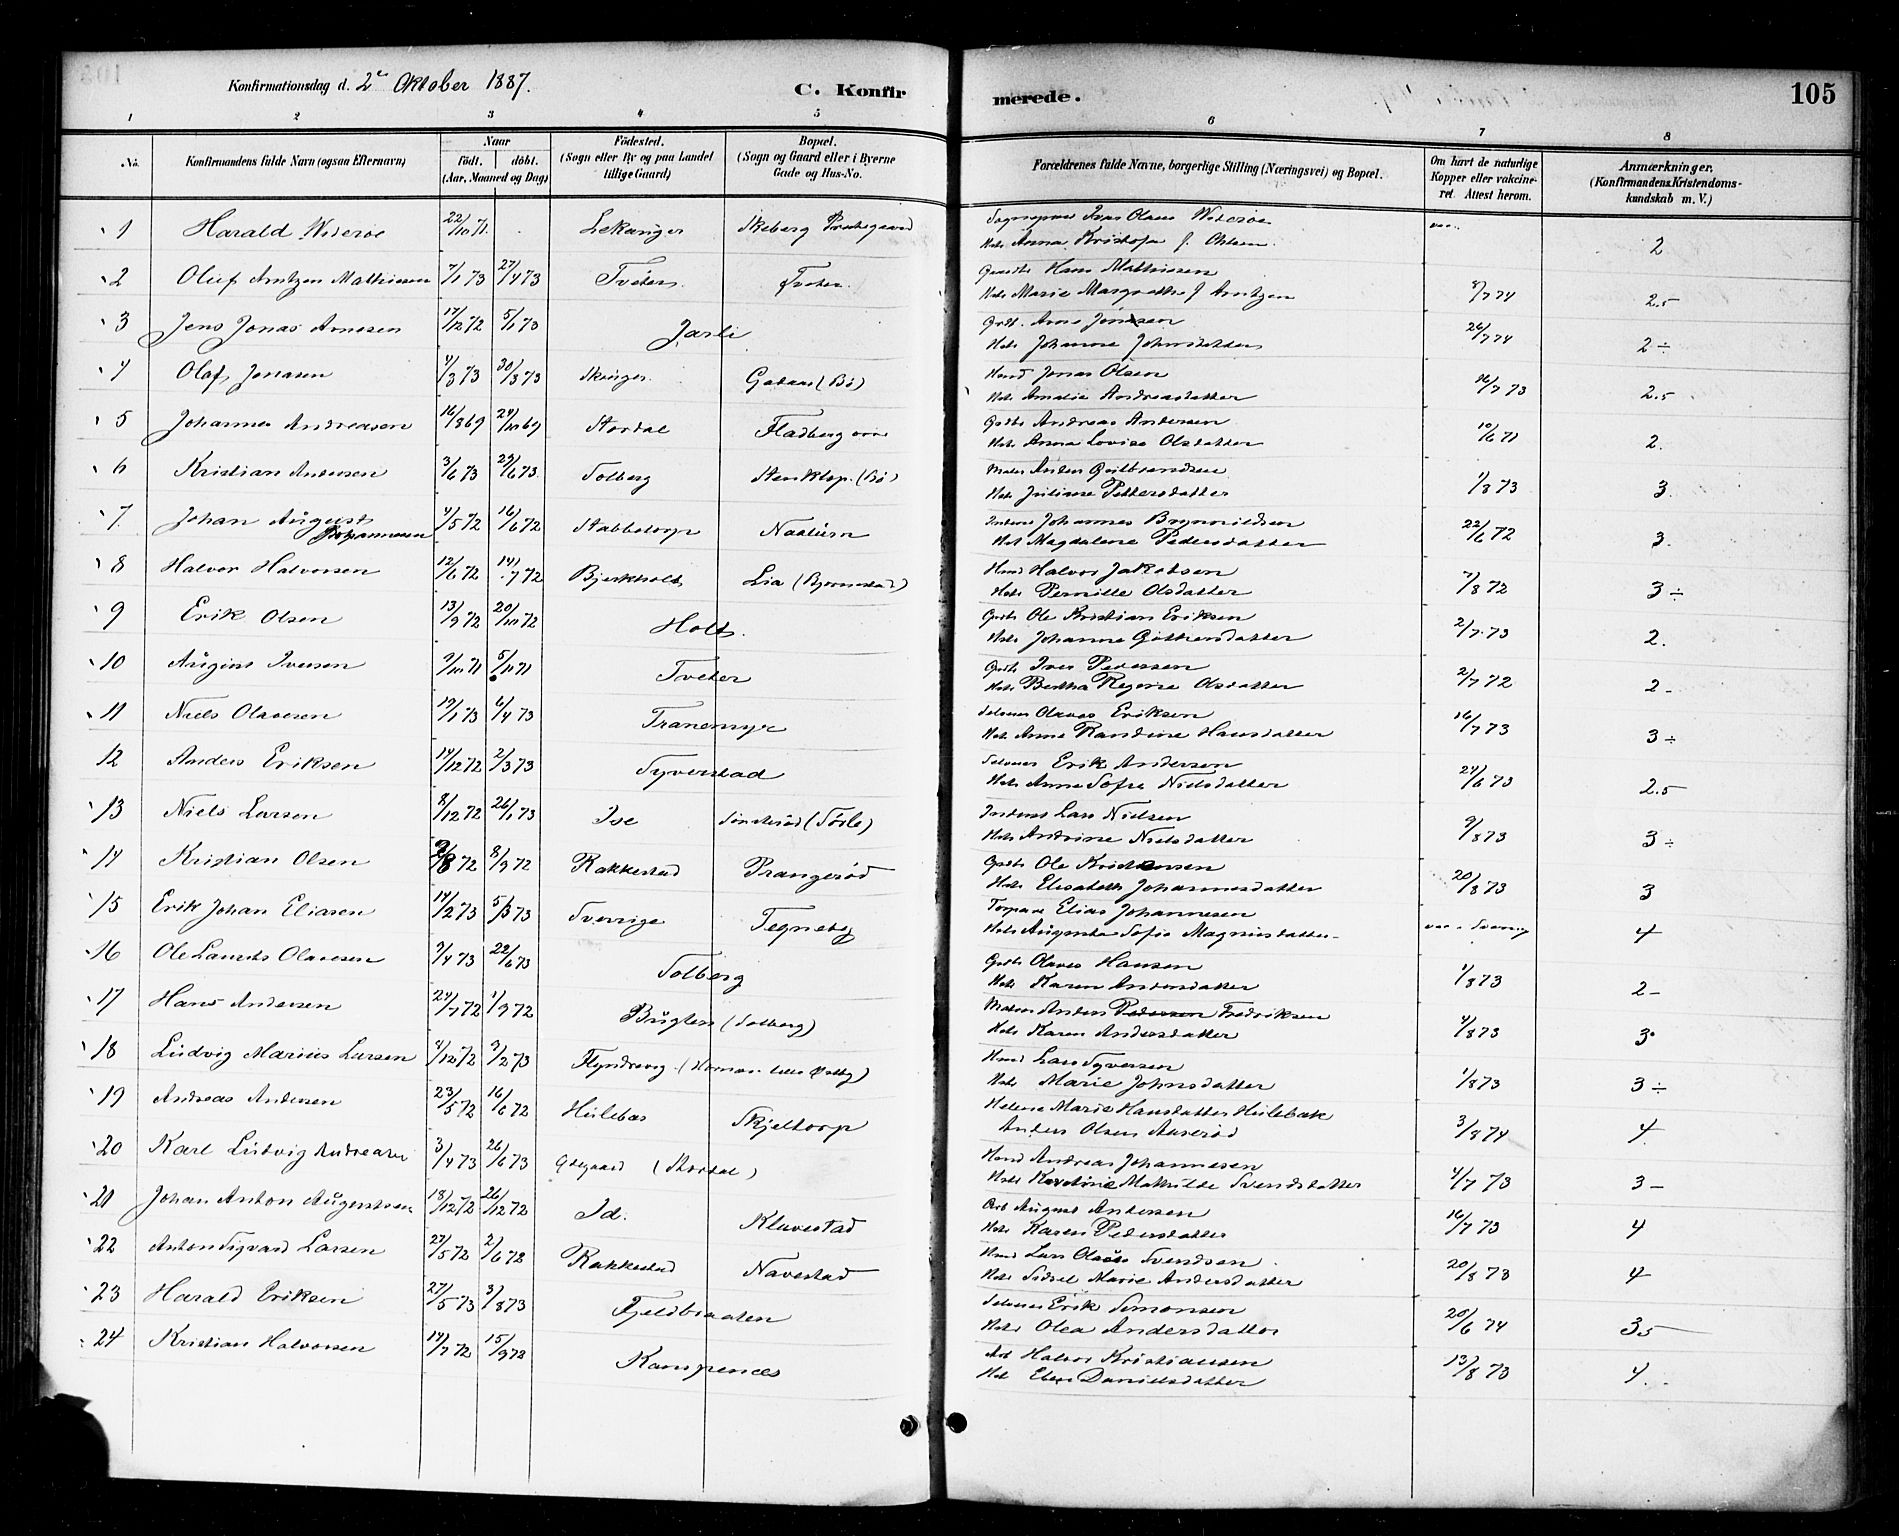 Konfirmationsdag d. 2 Oktober 1887.
C. Konfirmerede.
105
1 2 3 4 5 6 7 8
No. Konfirmandens fulde Navn (ogsaa Efternavn) Naar födt. döbt. (Aar, Maaned og Dag) Födested. (Sogn eller By og paa Landet tillige Gaard) Bopæl. (Sogn og Gaard eller i Byerne Gade og Hus-No. Forældrenes fulde Navne, borgerlige Stilling (Næringsvei) og Bopæl. Om havt de naturlige Kopper eller vakcineret. Attest herom. Anmærkninger. (Konfirmandens Kristendomskundskab m. V.)
1 Harald Wideröe 22/10 71 Lekanger Skeberg Præstegaard Sognepræst Iver Olaus Wideröe
Anna Kristofa f. Ohlsen 2
2 Oluf Arntzen Mathiesen 7/1 73 27/4 73 Tveter Tveter Hans Mathiesen
Marie Margrethe f Arntzen 8/7 74 2.5
3 Jens Jonas Arnesen 17/12 72 5/1 73 Jarli Grdb. Arne Jensen
Johanne Johnsdatter 26/7 74 2 ÷
4 Olaf Jonasen 4/3 73 30/3 73 (Bö) Hmd Jonas Olsen
Amalie Andreasdatter 16/7 73 2.5
5 Johannes Andreasen 16/8 69 24/10 69 Stordal Fladberg Andreas Andersen
Anna Lovise Olsdatter 10/6 71 2.
6 Kristian Andersen 3/6 73 29/6 73. Solberg (Bö) Anders Gulbrandsen
Juliane Pettersdatter 1/8 73 3.
7 Johan August Johannesen 4/5 72 16/6 72 Stabbetorp Johannes Brynnildsen
Magdalene Pedersdatter 22/6 72 3.
8 Halvor Halvorsen 12/6 72 14/7 72 Bjerkholt Lia (Bjørnestad) Hmd Halvor Jakobsen
Pernille Olsdatter 7/8 72 3 ÷
9 Erik Olsen 13/9 72 20/10 72 Holt. Ole Kristian Eriksen
Johanne 2/7 73 2.
10 August Iversen 9/10 71 5/11 71 Tveter Iver Pedersen
Bertha Regine Olsdatter 2/7 72 2 -
11 Niels Olavesen 19/1 73 6/4 73 Tranemyr Olaves Eriksen
Anne Randine Hansdatter 16/7 73 3 ÷
12 Anders Eriksen 14/12 72 2/3 73 Syverstad Erik Andersen
Anne Sofie Nielsdatter 24/6 73 2.5
13 Niels Larsen 8/12 72 26/1 73 Ise Lars Nielsen
Andrine Nielsdatter 9/8 73 3 ÷
14 Kristian Olsen 2/8 72 8/9 72 Rakkestad Prangeröd Ole Kristensen
Elisabeth Johannesdatter 20/8 73 3
15 Erik Johan Eliasen 14/2 73 5/3 73 Sverrige Tegneby Torpare Elias Johannesen
Augusta Sofia Magnusdatter 4
16 Ole Laurits Olavesen 7/4 73 22/6 73 Solberg Olaves Hansen
Karen Andersdatter 1/8 73 2 -
17 Hans Andersen 24/7 72 1/9 72 Bugten (Solberg) Anders Pedersen Fredriksen
Karen Andersdatter 4/8 73 3
18 Ludvig Marius Larsen 4/12 72 9/2 73 Flyndrevig Hmd Lars Syversen
Marie Johnsdatter 1/8 73 3 ÷
19 Andreas Andersen 23/5 72 16/6 72 Skjeltorp Helene Marie Hansdatter Hulebak
Anders Olsen 3/8 74 4.
20 Karl Ludvig Andreasen 3/4 73 26/6 73 (Stordal) Hmd Andreas Johannesen
Mathilde Svendsdatter 4/7 73 3 -
21 Johan Anton Augustsen 18/12 72 26/12 72 Id. Klavestad August Andersen
Karen Pedersdatter 16/7 73 4
22 Anton Sigvard Larsen 27/5 72 2/6 72 Rakkestad Navestad Hmd Lars Olaus Svendsen
Sidsel Marie Andersdatter 20/8 73 4
23 Harald Eriksen 27/5 73 3/8 73 Fjeldbraaten Erik Simonsen
Olea Andersdatter 20/6 74 3.5
24 Kristian Halvorsen 14/7 72 15/9 72 Kampenæs Halvor Kristiansen
Danielsdatter 13/8 73 4.